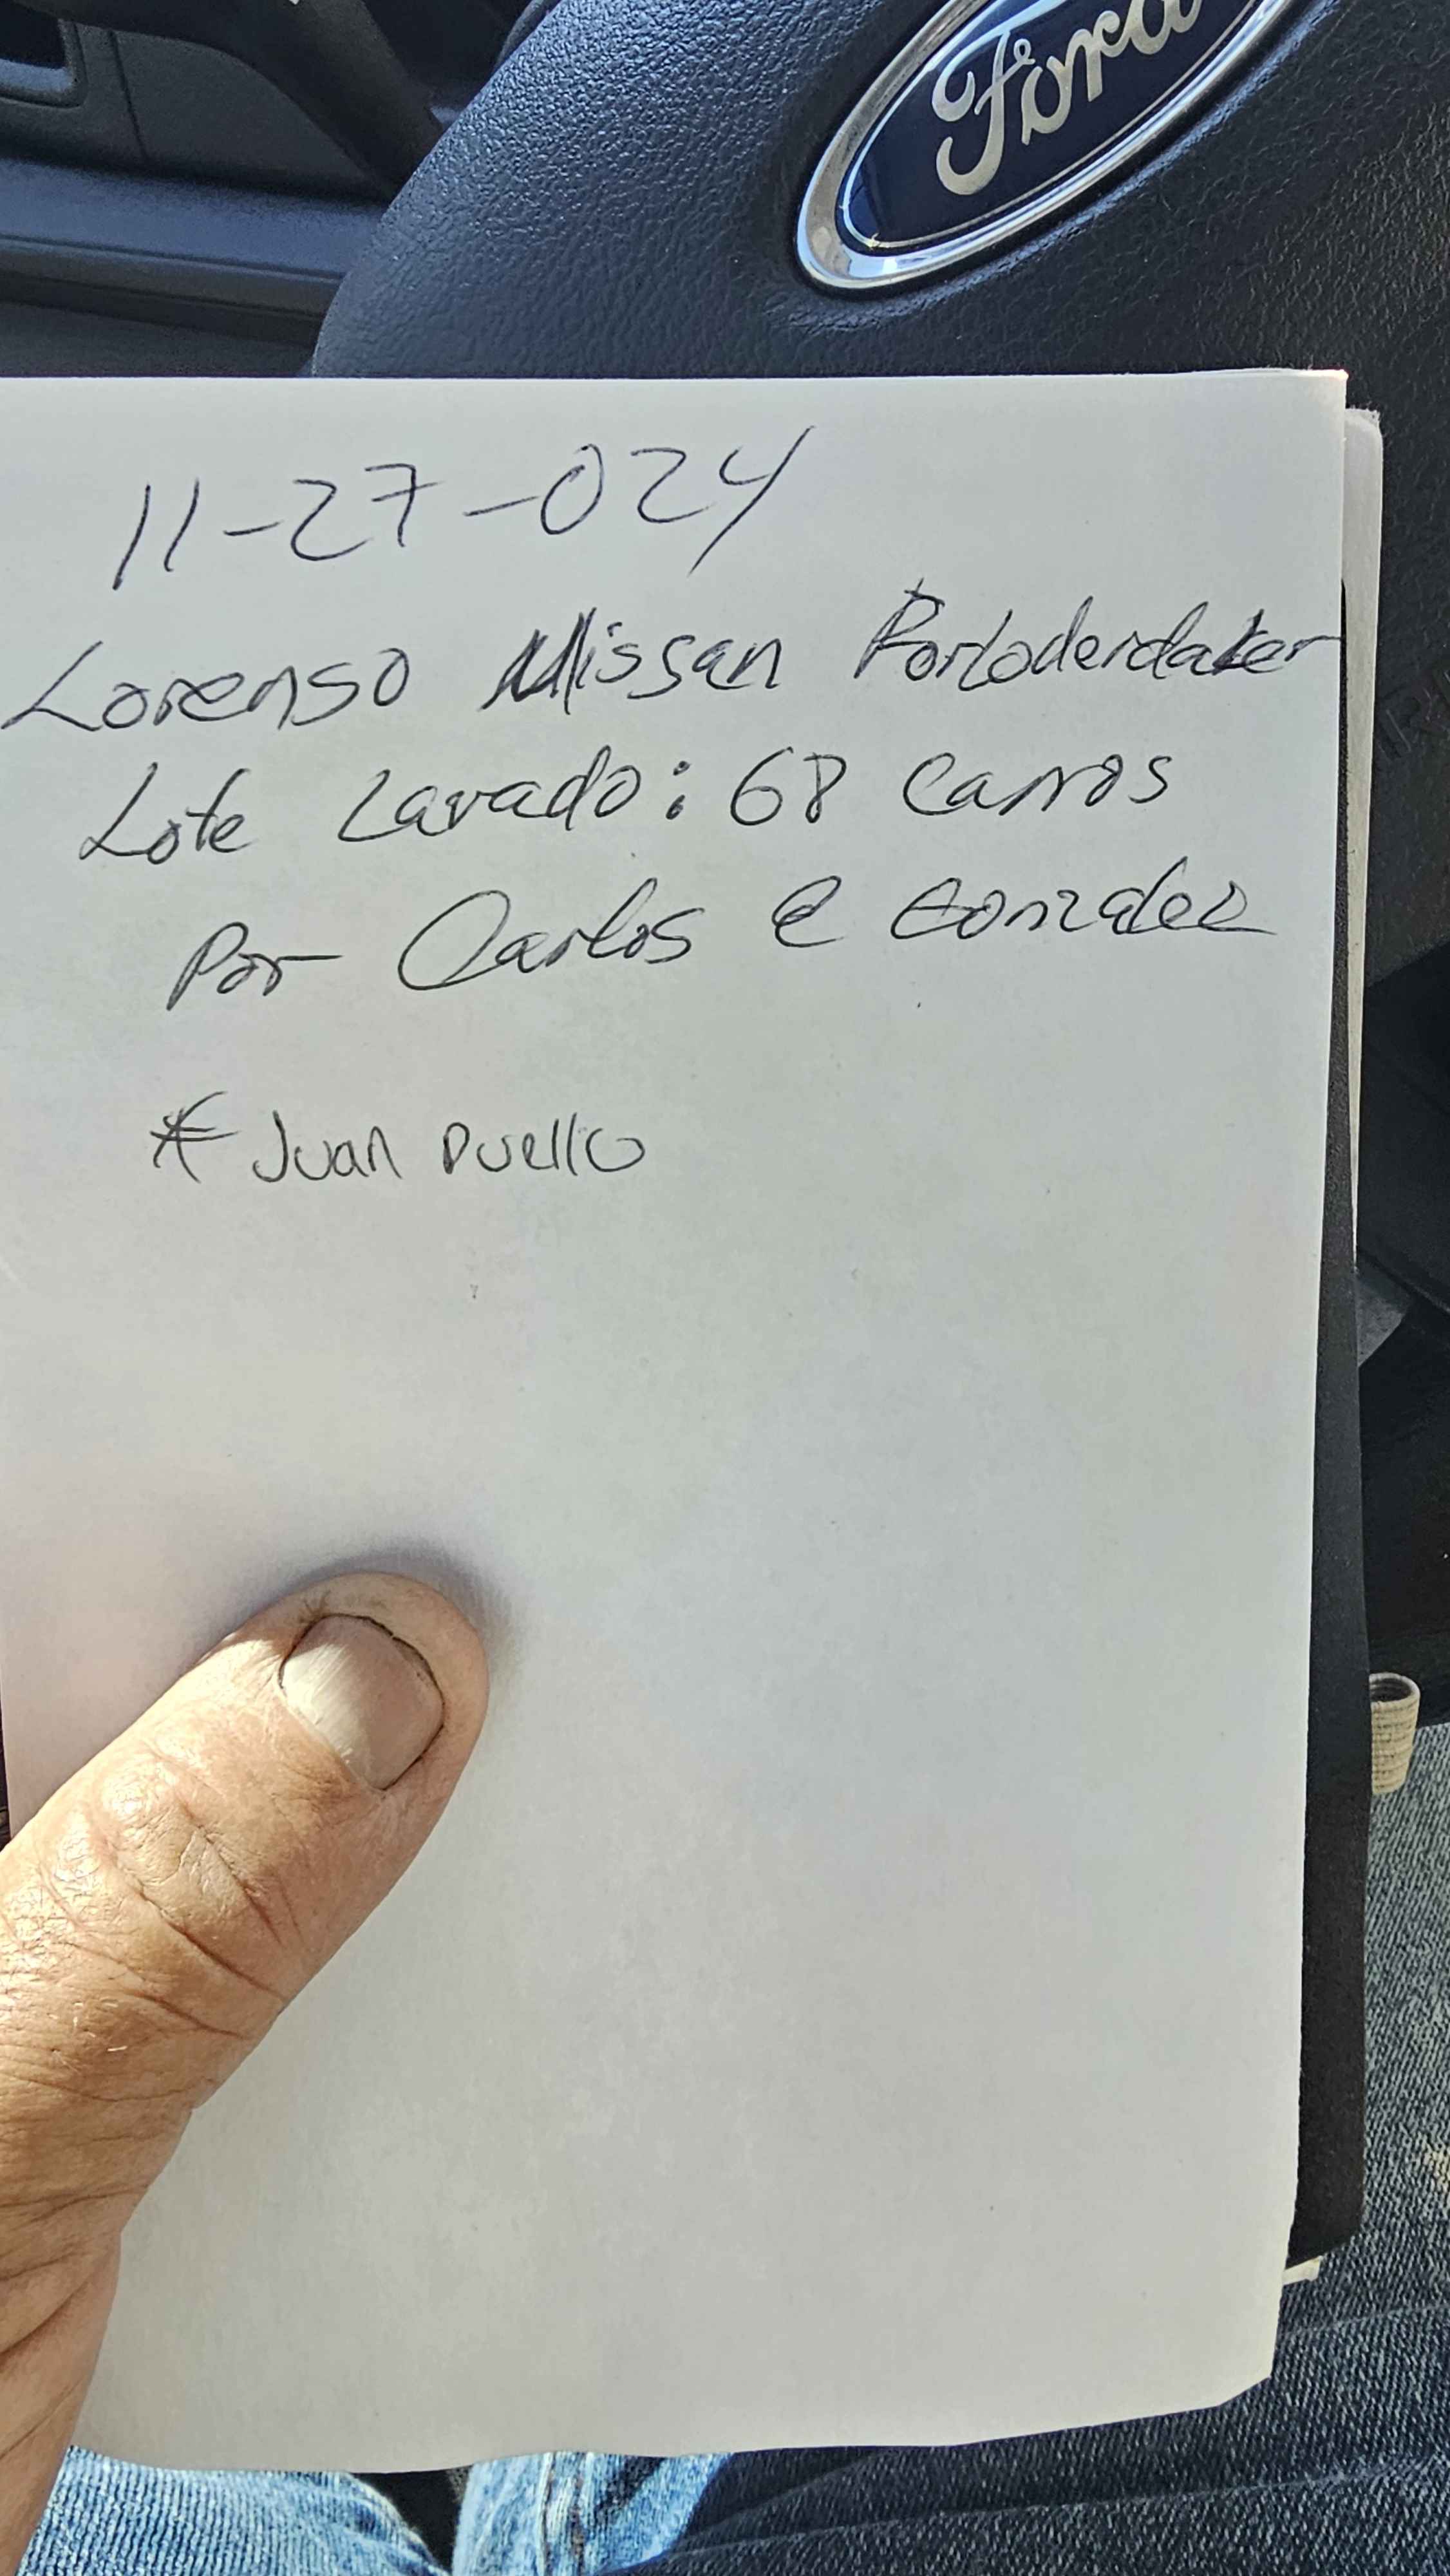 Ford
11-27-024
Lorenso Nissan Forloderdaler
Lote Lavado: 68 Carros
Por Carlos E Gonzalez
* Juan Duello